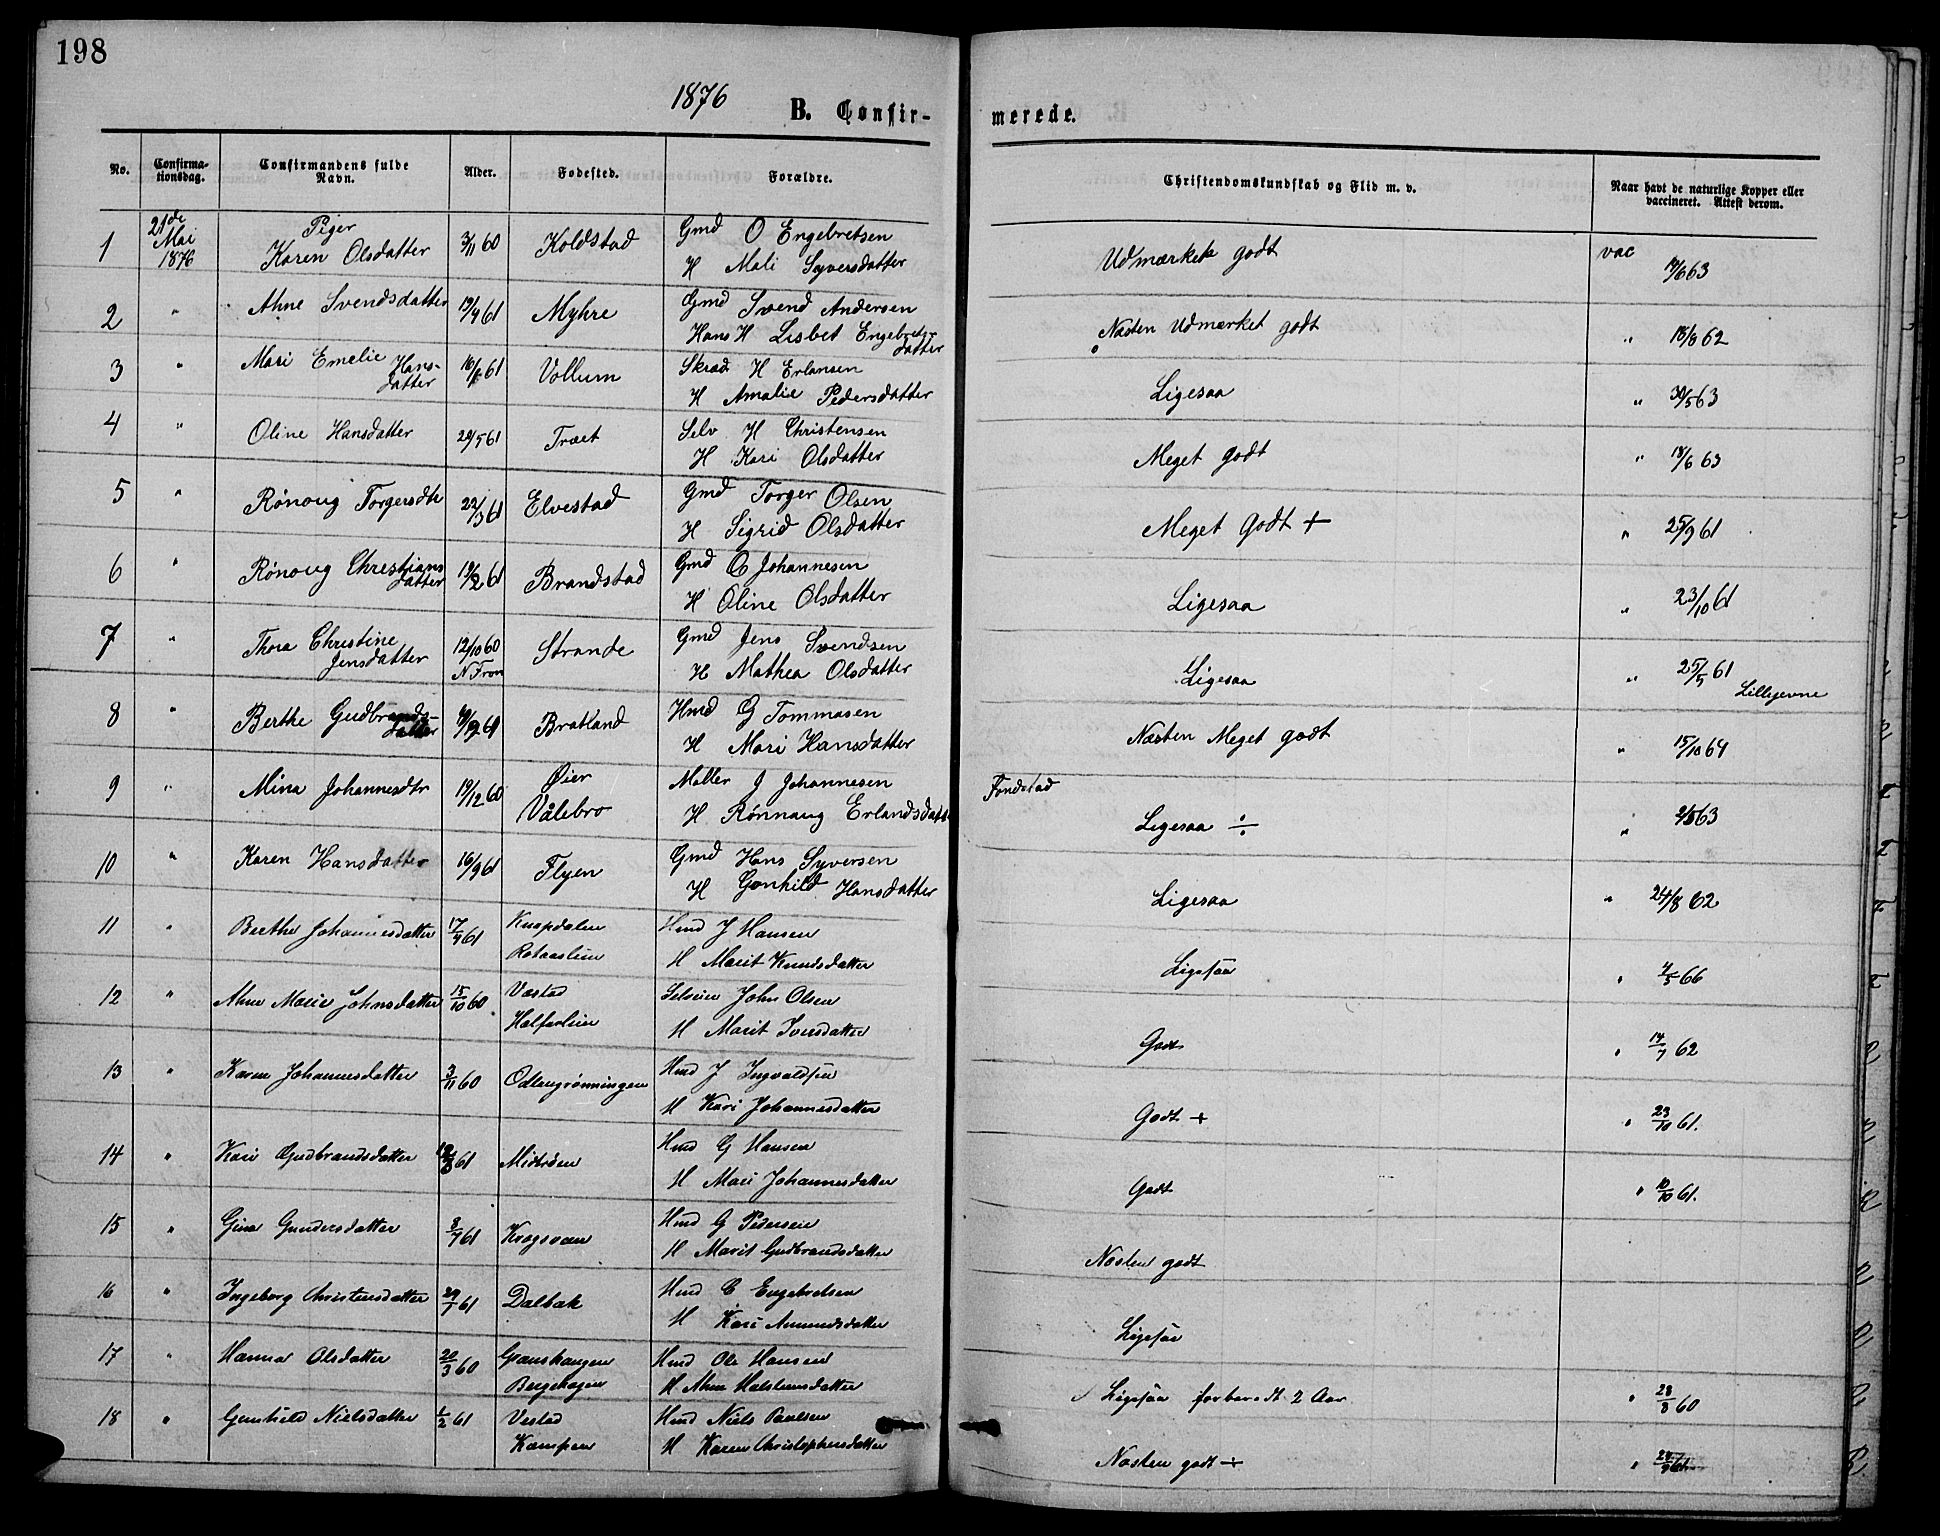 198
1876
B. Confir-
merede.
No. Confirma-tionsdag. Confirmandens fulde Navn. Alder. Fødested. Forældre. Christendomskundskab og Flid m. v. Naar havt de naturlige Kopper eller vaccineret. Attest derom.
21de Mai 1876
Piger
1 Karen Olsdatter 3/11 60 Koldstad Gmd O Engebretsen Udmærkete godt vac 17/6 63
H Mali Syversdatter
2 " Ahne Svendsdatter 19/4 61 Myhre Gmd Svend Andersen Næsten Udmærket godt " 18/8 62
Hans H Lisbet Engebrets-
datter
3 " Mari Emelie Hans- 16/1 61 Vollum Skræd H Erlansen Ligesaa " 30/5 63
datter H Amalie Pedersdatter
4 " Oline Hansdatter 24/5 61 Træet Selv H Christensen Meget godt " 18/6 63
H Kari Olsdatter
5 " Rønoug Torgersdtr 22/3 61 Elvestad Gmd Torger Olsen Meget godt + " 25/9 61
H Sigrid Olsdatter
6 " Rønoug Christians 19/2 61 Brandstad Gmd C Johannesen Ligesaa " 23/10 61
datter H Oline Olsdatter
7 " Thora Christine 12/10 60 Strande Gmd Jens Svendsen Ligesaa " 25/5 61
Jensdatter N Fron H Mathea Olsdatter Lillejevne
8 " Berthe Gudbrands- 61 Bratland Hmd G Tommasen Næsten Meget godt " 15/10 64
datter H Mari Hansdatter
9 " Mina Johannesdtr 19/12 60 Øier Møller J Johannesen Fondstad
Vålebro H Rønnaug Erlandsdatt Ligesaa ÷ " 63
10 " Karen Hansdatter 16/9 61 Flyen Gmd Hans Syversen Ligesaa " 24/8 62
H Gonhild Hansdatter
11 " Berthe Johannesdatter 17/4 61 Knapdalen Hmd J Hansen Ligesaa " 4/5 66
H Marit Knudsdatter
12 " Ahne Marie Johnsdatter 15/10 60 Vestad Selveier John Olsen Godt " 14/7 62
H Marit Iversdatter
13 " Karen Johannesdatter 3/11 60 Odlaugrønningen Hmd J Ingvaldsen Godt + " 23/10 61.
H Kari Johannesdatter
14 " Kari Gudbrandsdatter 61 Midtrøen Hmd G Hansen Godt " 10/10 61.
H Mari Johannesdatter
15 " Gina Gundersdatter 8/7 61 Krogsveen Hmd G Pedersen Næsten godt
H Marit Gudbrandsdatter
16 " Ingeborg Christensdatter 29/7 61 Dalbak Hmd C Engebretsen Ligesaa
H Kari Amundsdatter
17 " Hanna Olsdatter 20/3 60 Granshaugen Hmd Ole Hansen Ligesaa forberedt 2 Aar " 28/8 60
Bergehagen H Ahne Halstensdatter
18 " Gunhild Nielsdatter 1/2 61 Vestad Hmd Niels Paulsen Næsten godt ÷ " 61
Kampen H Karen Christophersdatter